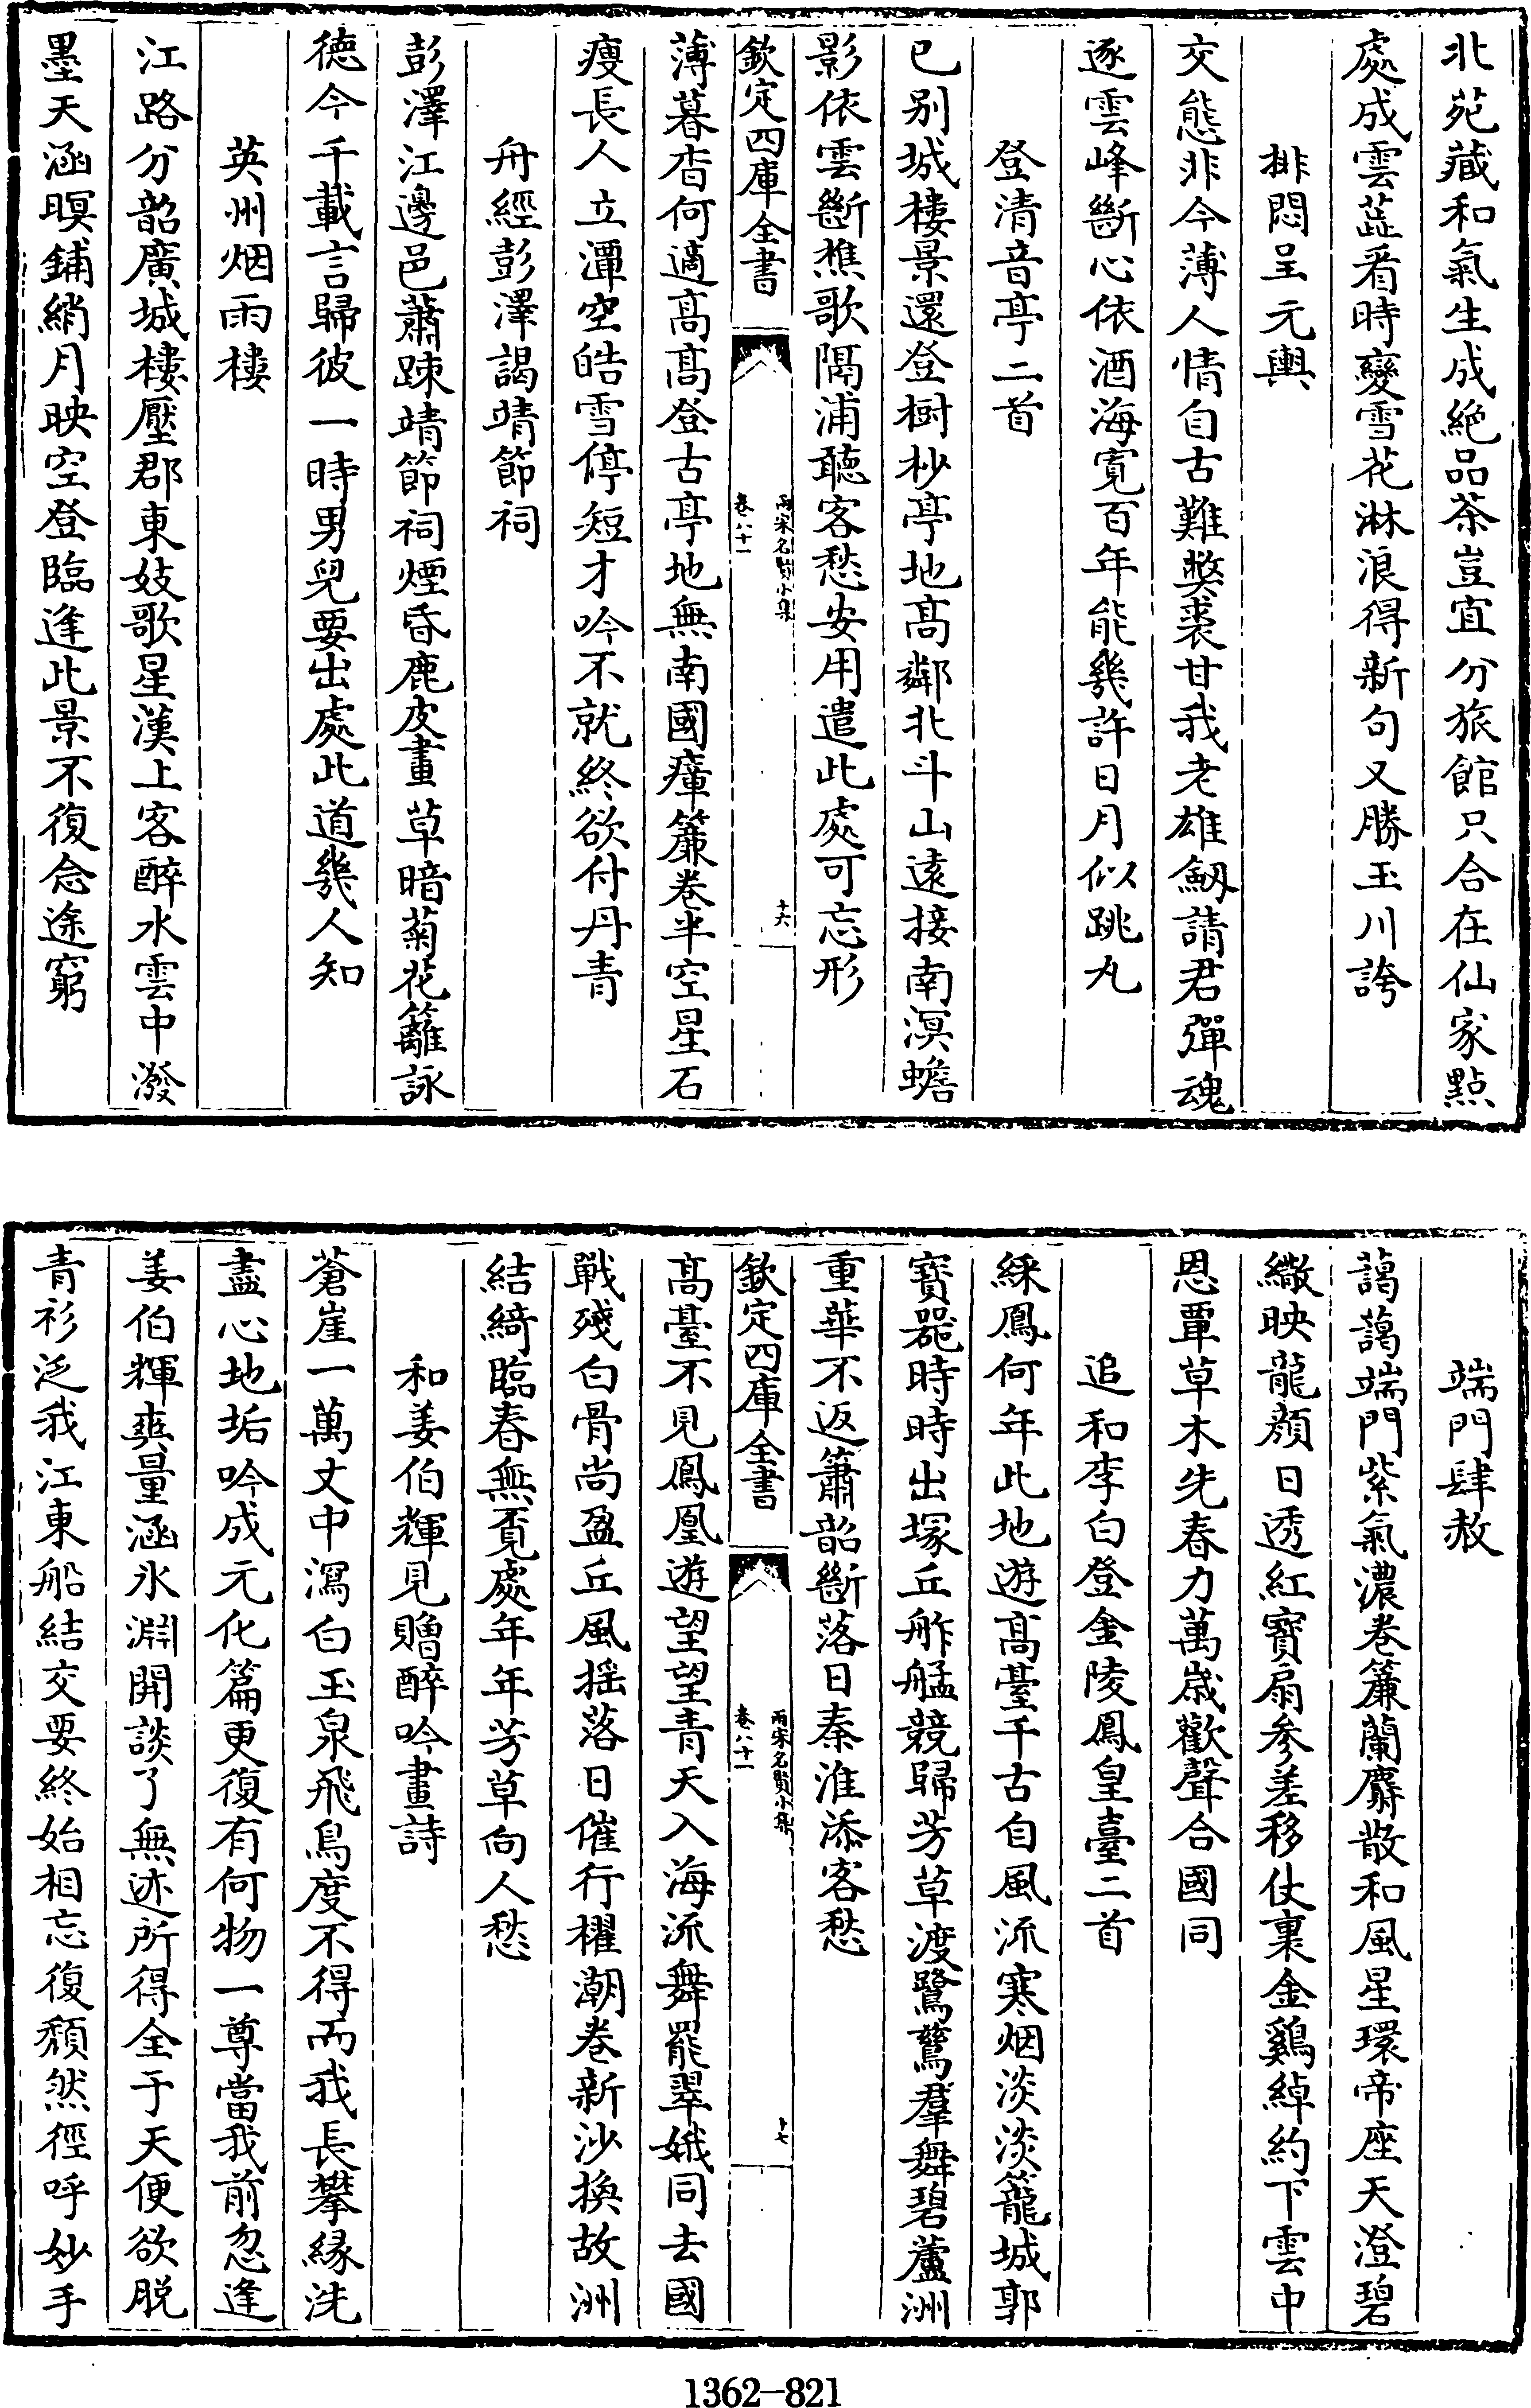 北苑藏和氣生成絶品茶豈宜分旅館只合在仙家點
處成雲蕋看時變雪花淋浪得新句又勝玉川誇
排悶呈元輿
交態非今薄人情自古難獘裘甘我老雄劔請君彈魂
逐雲峰斷心依酒海寛百年能幾許日月似跳丸
登清音亭二首
已别城樓景還登樹杪亭地髙鄰北斗山遠接南溟蟾
影依雲斷樵歌隔浦聽客愁安用遣此處可忘形
欽定四庫全書
兩宋名賢小集
卷八十一
十六
薄暮杳何適髙髙登古亭地無南國瘴簾卷半空星石
瘦長人立潭空皓雪停短才吟不就終欲付丹青
舟經彭澤謁靖節祠
彭澤江邊邑蕭踈靖節祠煙昏鹿皮畫草暗菊花籬詠
徳今千載言歸彼一時男兒要出處此道幾人知
英州烟雨樓
江路分韶廣城樓壓郡東妓歌星漢上客醉水雲中潑
墨天涵暝鋪綃月映空登臨逢此景不復念途窮
端門肆赦
藹藹端門紫氣濃卷簾蘭麝散和風星環帝座天澄碧
繖映龍顔日透紅寳扇參差移仗裏金鷄綽約下雲中
恩覃草木先春力萬歳歡聲合國同
追和李白登金陵鳳皇臺二首
綵鳳何年此地遊髙臺千古自風流寒烟淡淡籠城郭
寳器時時出塚丘舴艋競歸芳草渡鷺鶿羣舞碧蘆洲
重華不返簫韶斷落日秦淮添客愁
欽定四庫全書
兩宋名賢小集
卷八十一
十七
髙臺不見鳳凰遊望望青天入海流舞罷翠娥同去國
戰殘白骨尚盈丘風揺落日催行櫂潮卷新沙換故洲
結綺臨春無覔處年年芳草向人愁
和姜伯輝見贈醉吟畫詩
蒼崖一萬丈中瀉白玉泉飛鳥度不得而我長攀縁洗
盡心地垢吟成元化篇更復有何物一尊當我前忽逢
姜伯輝爽量涵氷淵開談了無述所得全于天便欲脱
青衫泛我江東船結交要終始相忘復頽然徑呼妙手
1362-821